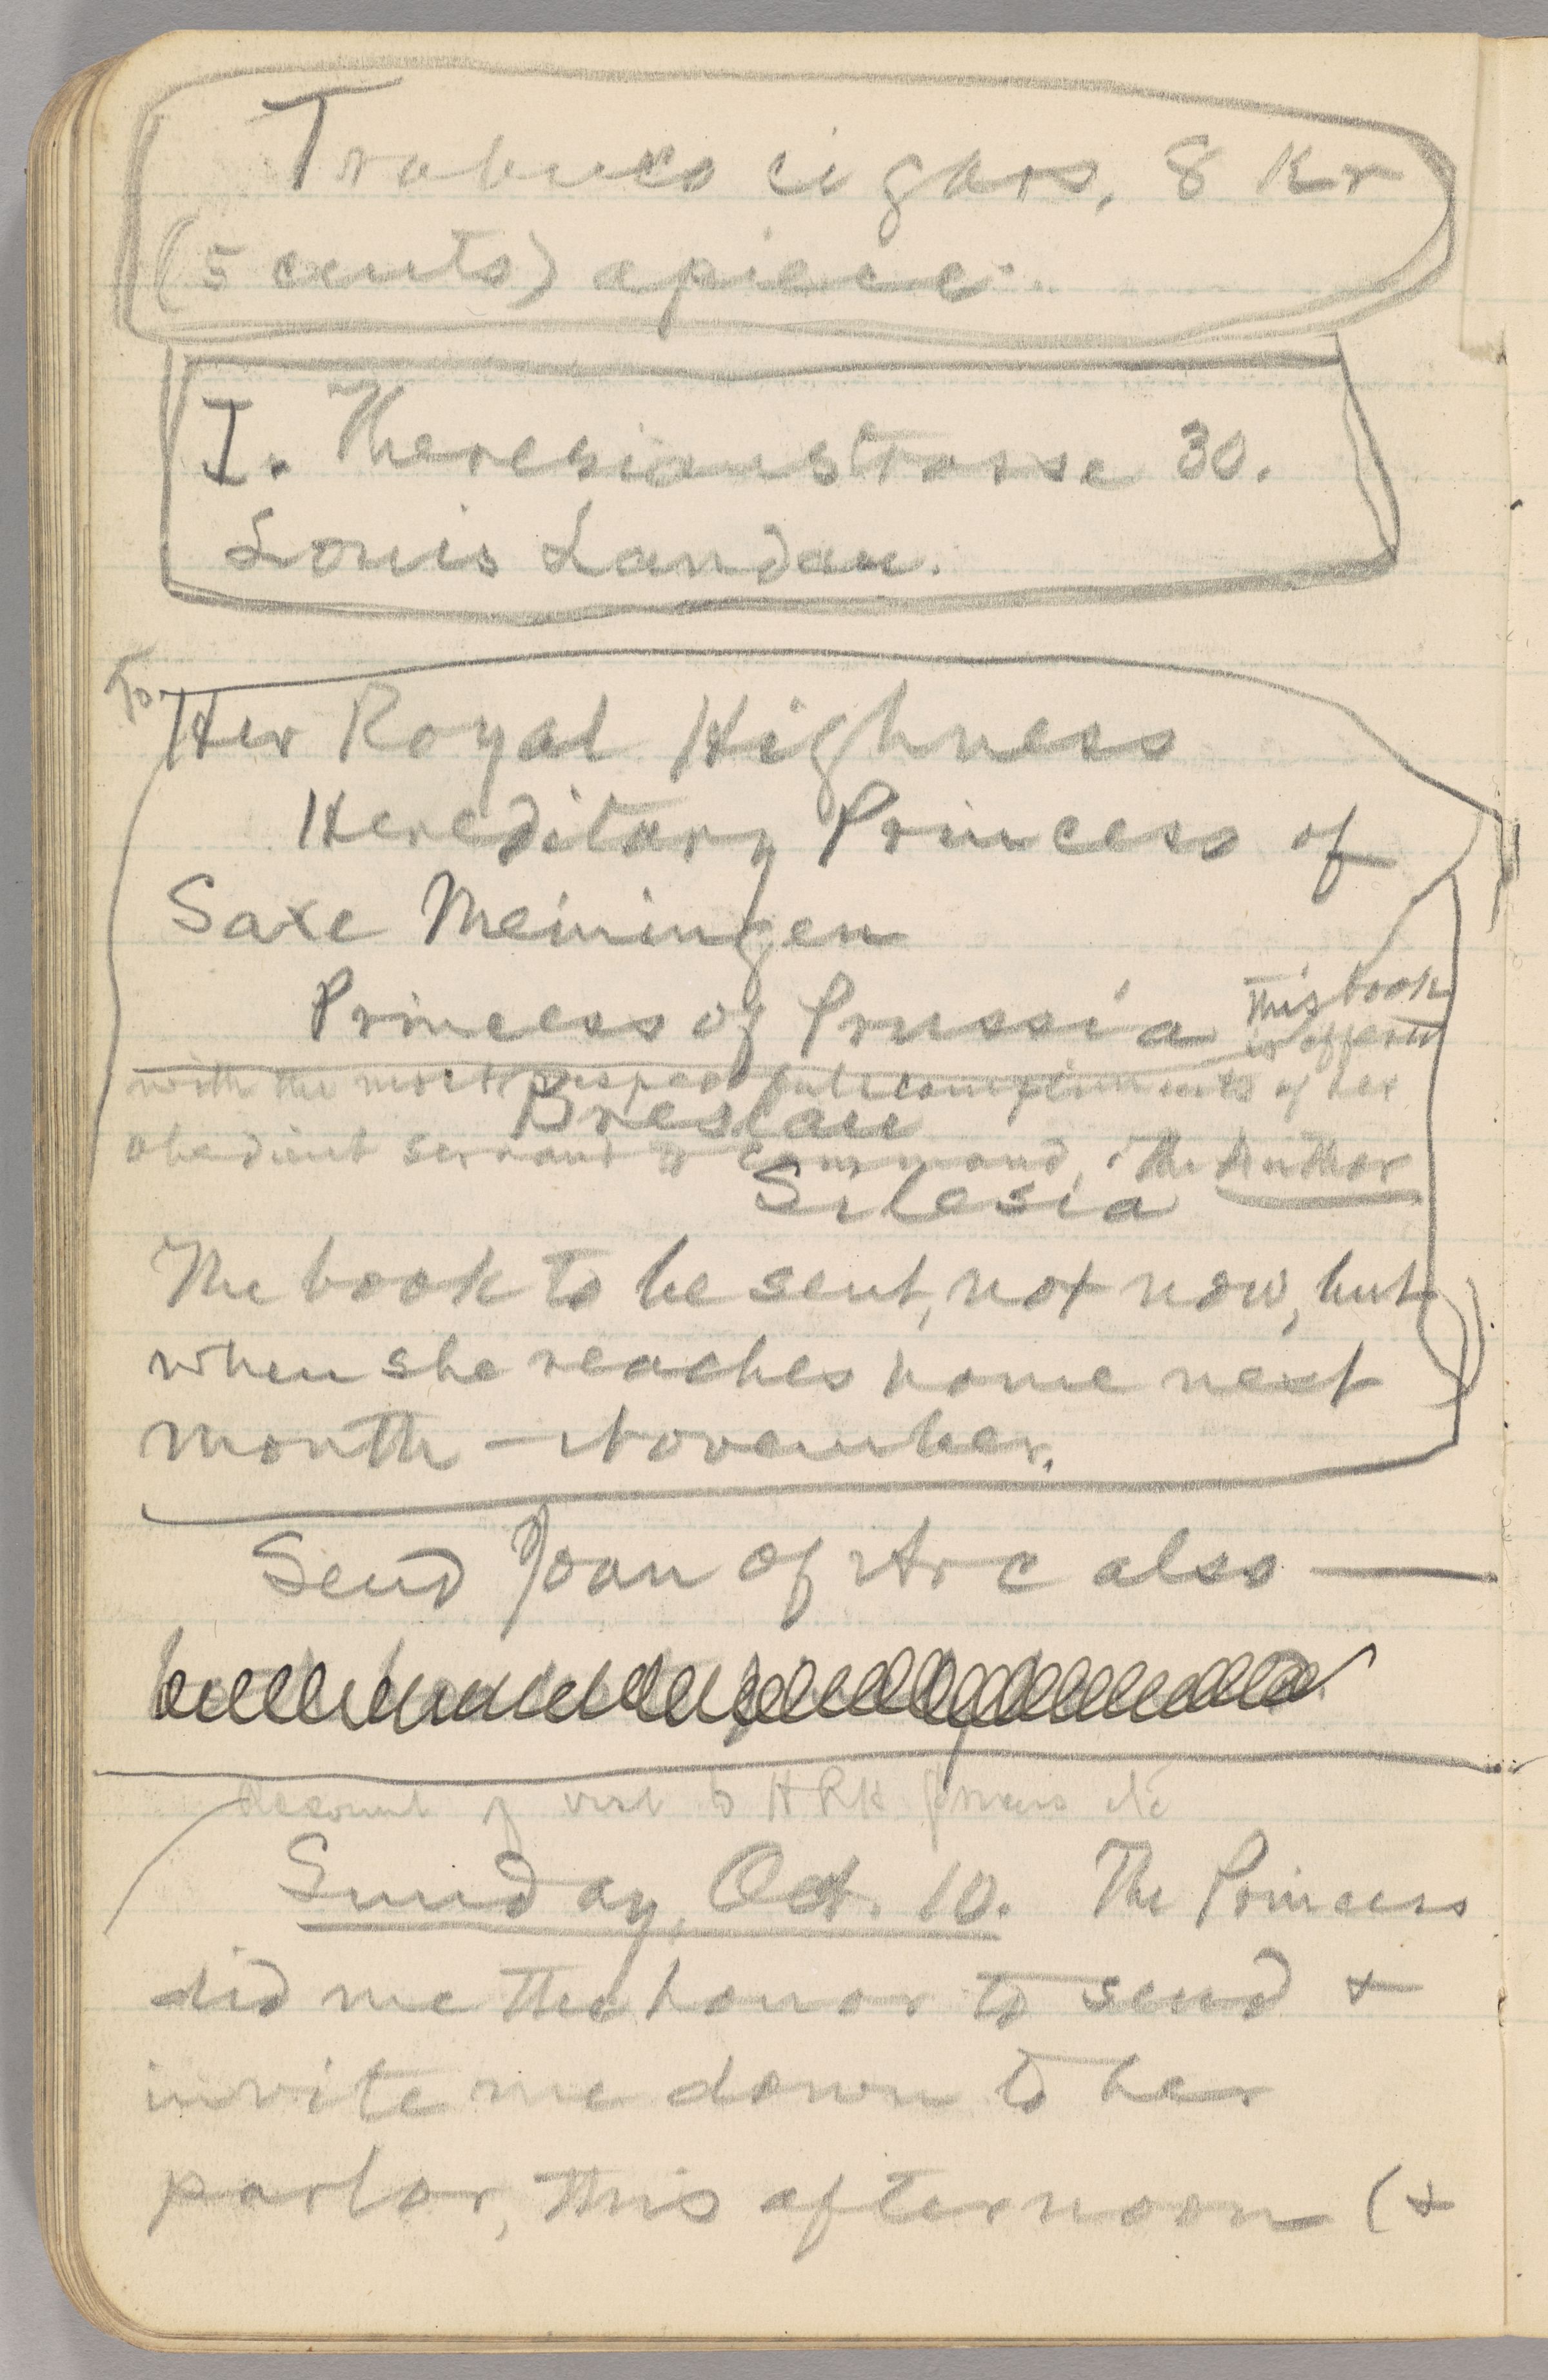 Trabuco cigars, 8 Kr
(5 cents) apiece.
I. Theresianstrasse 30.
Louis Landau.
To
Her Royal Highness
Hereditary Princess of
Saxe Meiningen
Princess of Prussia
this book
is offered
with the most respectful compliments of her
Breslau
obedient servant to command, The Author
Silesia
The book to be sent, not now, but
when she reaches home next
month — November.
Send Joan of Arc also —
Account of visit to HRH Princess etc
Sunday, Oct. 10. The Princess
did me the honor to send &
invite me down to her
parlor, this afternoon (&